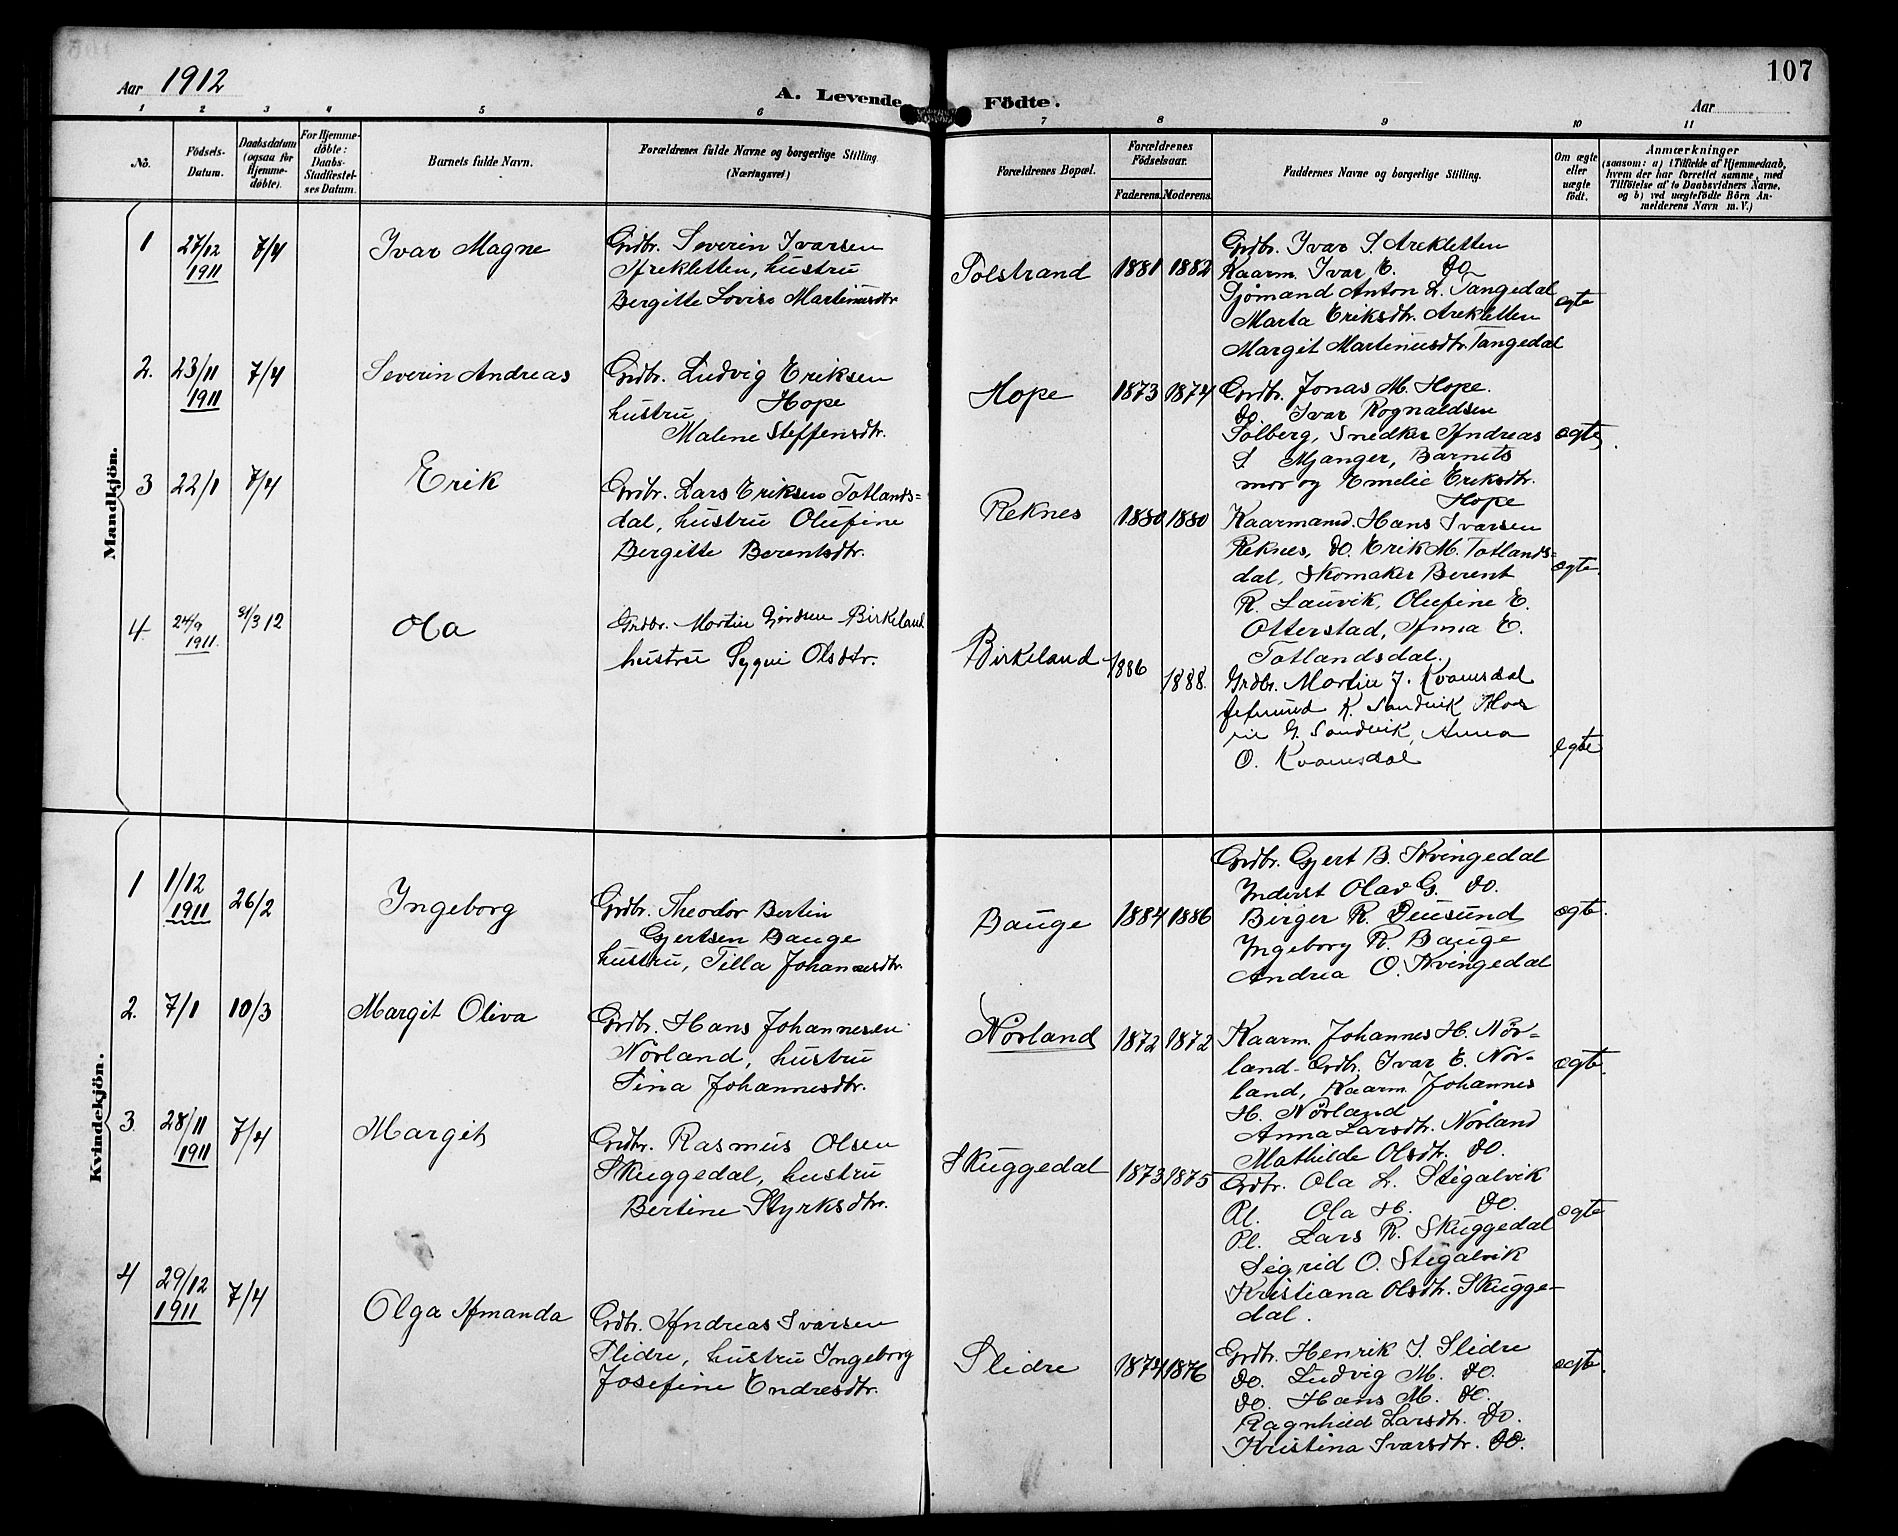 107
Aar 1912
A. Levende Födte.
Aar
1 2 3 4 5 6 7 8 9 10 11
Nö.
Födsels-Datum.
Daabsdatum (ogsaa for Hjemme-döbte).
For Hjemme-döbte: Daabs-Stadfæstel-ses Datum.
Barnets fulde Navn.
Forældrenes fulde Navne og borgerlige Stilling (Næringsvei)
Forældrenes Bopæl.
Forældrenes Födselsaar.
Faderens. Moderens.
Faddernes Navne og borgerlige Stilling.
Om ægte eller uægte födt.
Anmærkninger
(saasom: a) i Tilfælde af Hjemmedaab, hvem der har forrettet samme, med Tilföielse af to Daabsvidners Navne, og b) ved uægtefödte Börn Anmelderens Navn m. V.)
Mandkjön.
1
27/12 1911
7/4
Ivar Magne
Grdbr. Severin Ivarsen
Arekletten, hustru
Bergitte Lovise Martinusdtr
Polstrand
1881 1882
Grdbr. Ivar S. Arekletten
Kaarm. Ivar E. do
Sjömand Anton L. Tangedal
Marta Eriksdtr. Arekletten
Margit Martinusdtr. Tangedal
ægte
2.
23/11 1911
7/4
Severin Andreas
Grdbr. Ludvig Eriksen
hustru Hope
Malene Steffensdtr.
Hope
1873 1874
Grdbr. Jonas M. Hope.
do Ivar Rognaldsen
Solberg, Snedker Andreas
S. Mjanger, Barnets
mor og Emelie Eriksdtr.
Hope
ægte
3
22/1
7/4
Erik
Grdbr. Lars Eriksen Totlands=
dal, hustru Olufine
Bergitte Berentsdtr.
Reknes
1880 1880
Kaarmand. Hans Ivarsen
Reknes, do. Erik M. Totlands=
dal, Skomaker Berent
R. Lauvik, Olufine E.
Otterstad, Anna E.
Totlandsdal.
ægte
4.
24/9 1911.
31/3 12
Ola
Grdbr. Martin Birkeland
hustru Olsdtr.
Birkeland
1886
1888.
Grdbr. Martin J. Kvamsdal
K. Sandvik
G. Sandvik, Anna
O. Kvamsdal
egte
Kvindekjön.
1
1/12 1911
26/2
Ingeborg
Grdbr. Theodor Bertin
Gjertsen Bauge
hustru, Tilla Johannesdtr
Bauge
1884 1886
Grdbr. Gjert B. Kvingedal
Inderst Olav G. do.
Birger R. Duesund
Ingeborg R. Bauge
Andrea O. Kvingedal
ægte.
2.
7/1
10/3
Margit Oliva
Grdbr. Hans Johannesen
Nörland, hustru
Sina Johannesdtr.
Nörland
1872 1872
Kaarm. Johannes H. Nör-
land. Grdbr. Ivar E. Nör-
land, Kaarm. Johannes
H. Nörland
Anna Larsdtr. Nörland
Mathilde Olsdtr. do.
ægte.
3
28/11 1911
7/4
Margit
Grdbr. Rasmus Olsen
Skuggedal, hustru
Bertine Styrksdtr.
Skuggedal
1873 1875
Grdbr. Ola L. Stigalvik
Pl. Ola H. do.
Pl. Lars R. Skuggedal
Sigrid O. Stigalvik
Kristiana Olsdtr. Skugge-
dal.
ægte
4
29/12 1911
7/4
Olga Amanda
Grdbr. Andreas Ivarsen
Slidre, hustru Ingeborg
Josefine Endresdtr.
Slidre
1874 1876
Grdbr. Henrik I. Slidre
do. Ludvig M. do.
do. Hans M. do.
Ragnhild Larsdtr. do.
Kristina Ivarsdtr. do.
ægte.